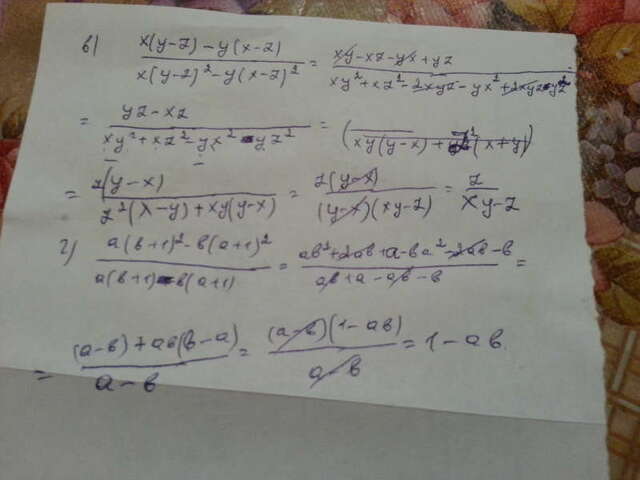 в) x(y-z)-y(x-z) / x(y-z)²-y(x-z)² = xy-xz-yx+yz / xy²+xz²-2xyz-yx²+2xyz-yz²
= yz-xz / xy²+xz²-yx²-yz² = ( / xy(y-x)+z²(x+y))
= z(y-x) / z²(x-y)+xy(y-x) = z(y-x) / (y-x)(xy-z) = z / xy-z
г) a(в+1)²-в(a+1)² / a(в+1)-в(a+1) = aв²+2aв+a-вa²-2aв-в / aв+a-aв-в =
= (a-в)+aв(в-a) / a-в = (a-в)(1-aв) / a-в = 1-aв.